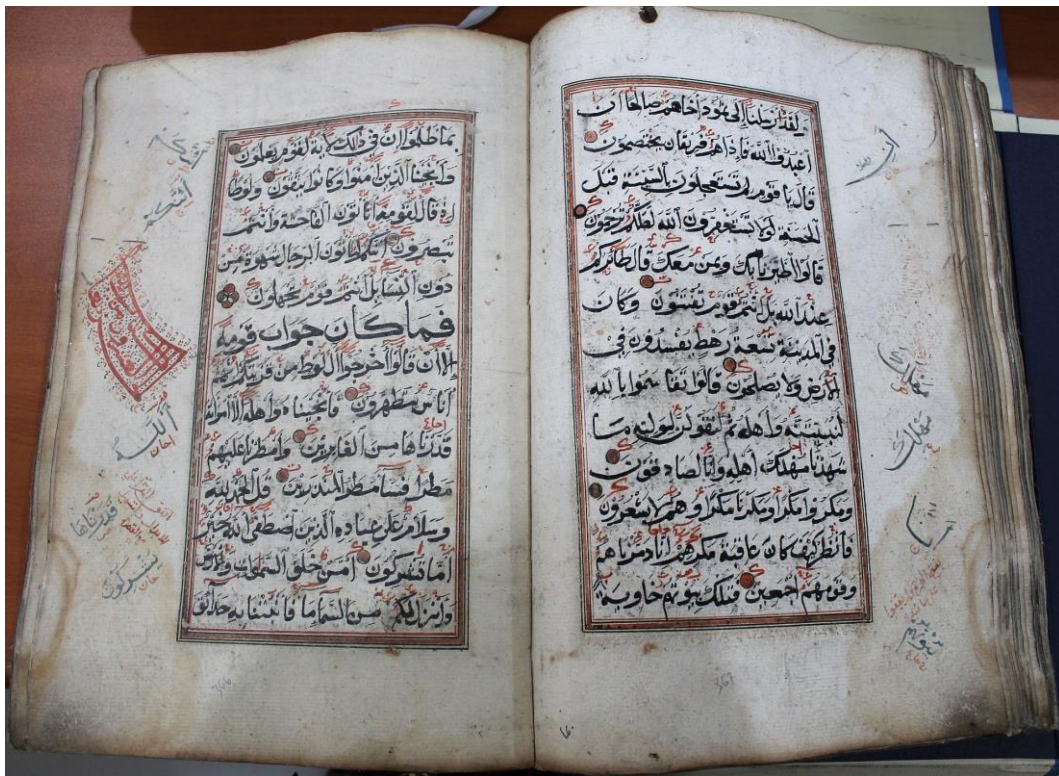 ولقد ارسلنا الى ثمود اخاهم صالحا ان
اعبدوا الله فاذا هم فريقان يختصمون
قال يا قوم لم تستعجلون السيئة قبل
الحسنة لولا تستغفرون الله لعلكم ترحمون
قالوا اطيرنا بك وبمن معك قال طائركم
عند الله بل انتم قوم تفتنون وكان
في المدينة تسعة رهط يفسدون في
الارض ولا يصلحون قالوا تقاسموا بالله
لنبيتنه واهله ثم لنقولن لوليه ما
شهدنا مهلك اهله وانا لصادقون
ومكروا مكرا ومكرنا مكرا وهم لا يشعرون
فانظر كيف كان عاقبة مكرهم انا دمرناهم
وقومهم اجمعين فتلك بيوتهم خاوية
مهلك
367
بما ظلموا ان في ذالك لاية لقوم يعلمون
وانجينا الذين امنوا وكانوا يتقون ولوطا
اذ قال لقومه اتاتون الفاحشة وانتم
تبصرون ائنكم لتاتون الرجال شهوة من
دون النساء بل انتم قوم تجهلون
فما كان جواب قومه
الا ان قالوا اخرجوا ال لوط من قريتكم انهم
اناس يتطهرون فانجيناه واهله الا امراته
قدرناها من الغابرين وامطرنا عليهم
مطرا فساء مطر المنذرين قل الحمد لله
وسلام على عباده الذين اصطفى الله خير
اما تشركون امن خلق السموات والارض
وانزل لكم من السماء ماء فانبتنا به حدائق
قدرناها
يشركون
366